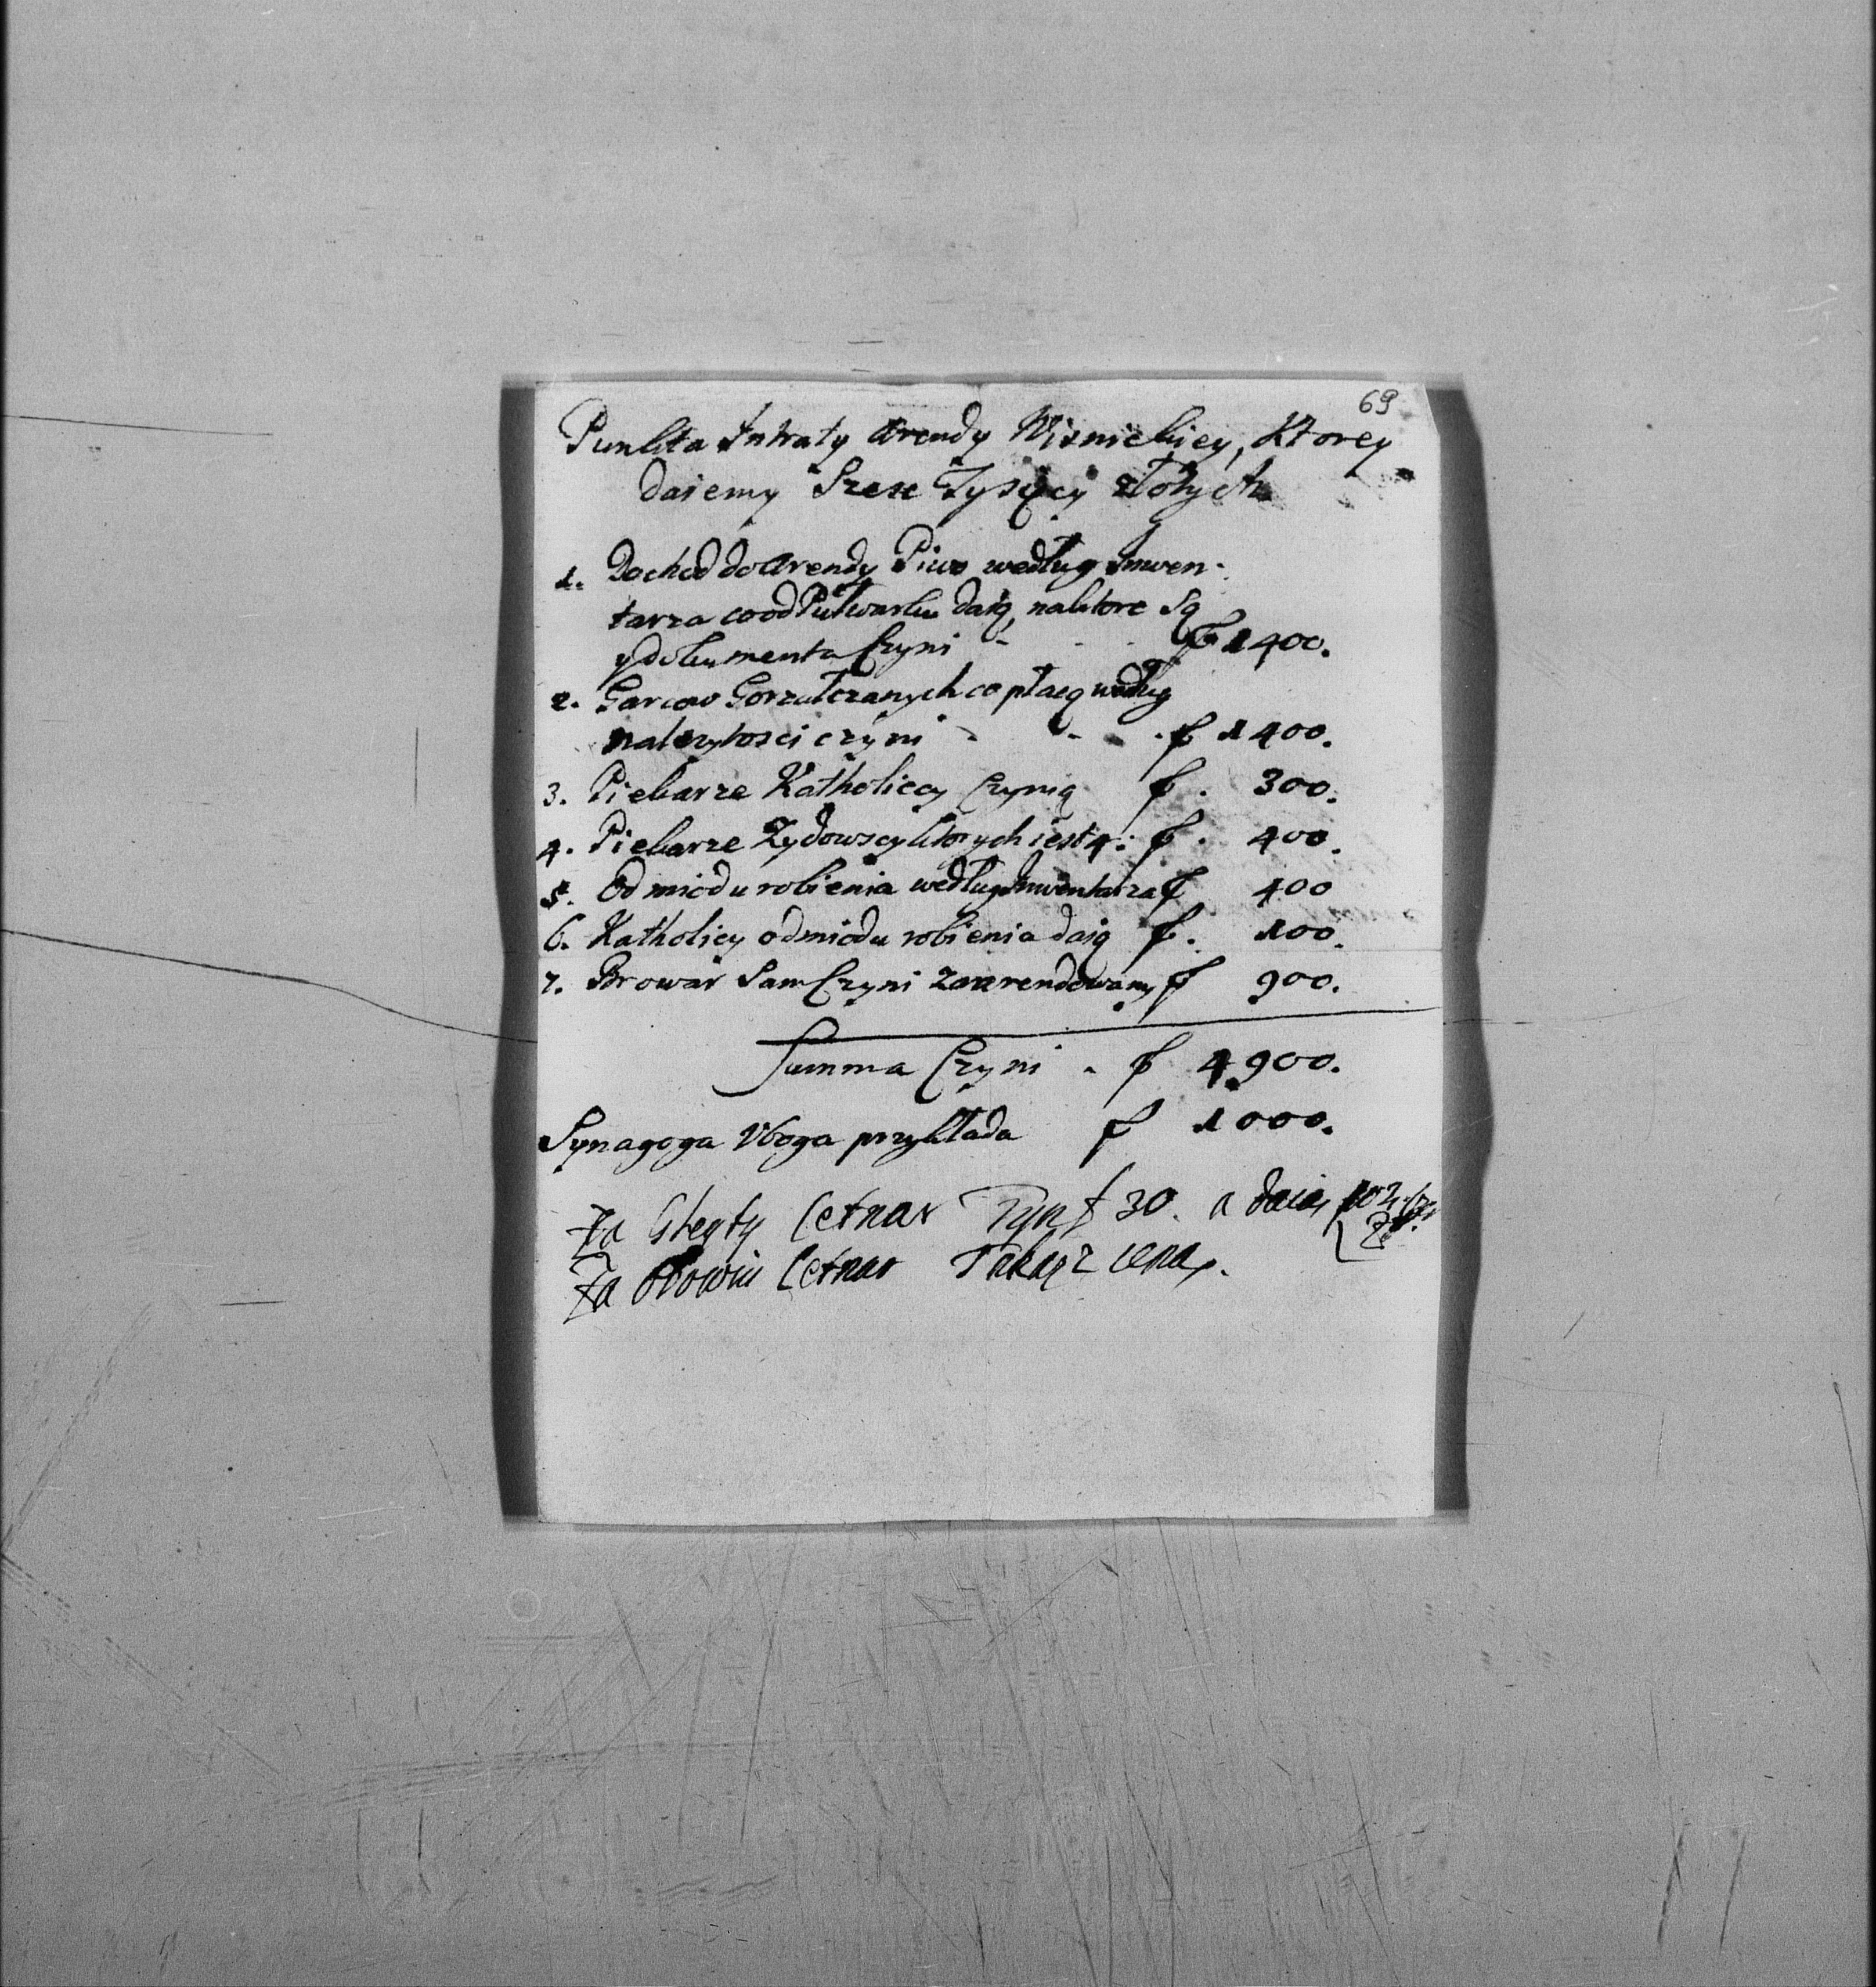 69
Punkta Intraty Arendy Wisnickiey, Ktorey
daiemy Szesc Tysięcy złotych
1. Dochod do Arendy Piwo według Inwen-
tarza co od Pułwarku daią, na ktore Są
y dokumenta Czyni - - f 1400.
2. Garcow Gorzałczanych co płacą według
nalezytosci czyni - - f 1400.
3. Piekarze Katholiccy Czynią f. 300.
4. Piekarze Zydowscy ktorych iest 4: f. 400.
5. Od miodu robienia według Inwentarza f 400
6. Katholicy od miodu robienia daią f. 100.
7. Browar Sam Czyni zaarendowany f 900.
Summa Czyni - f 4900.
Synagoga Uboga przykłada f 1000.
Za Cetnar Tynf 30. a
Za Cetnar Takąz cenę.